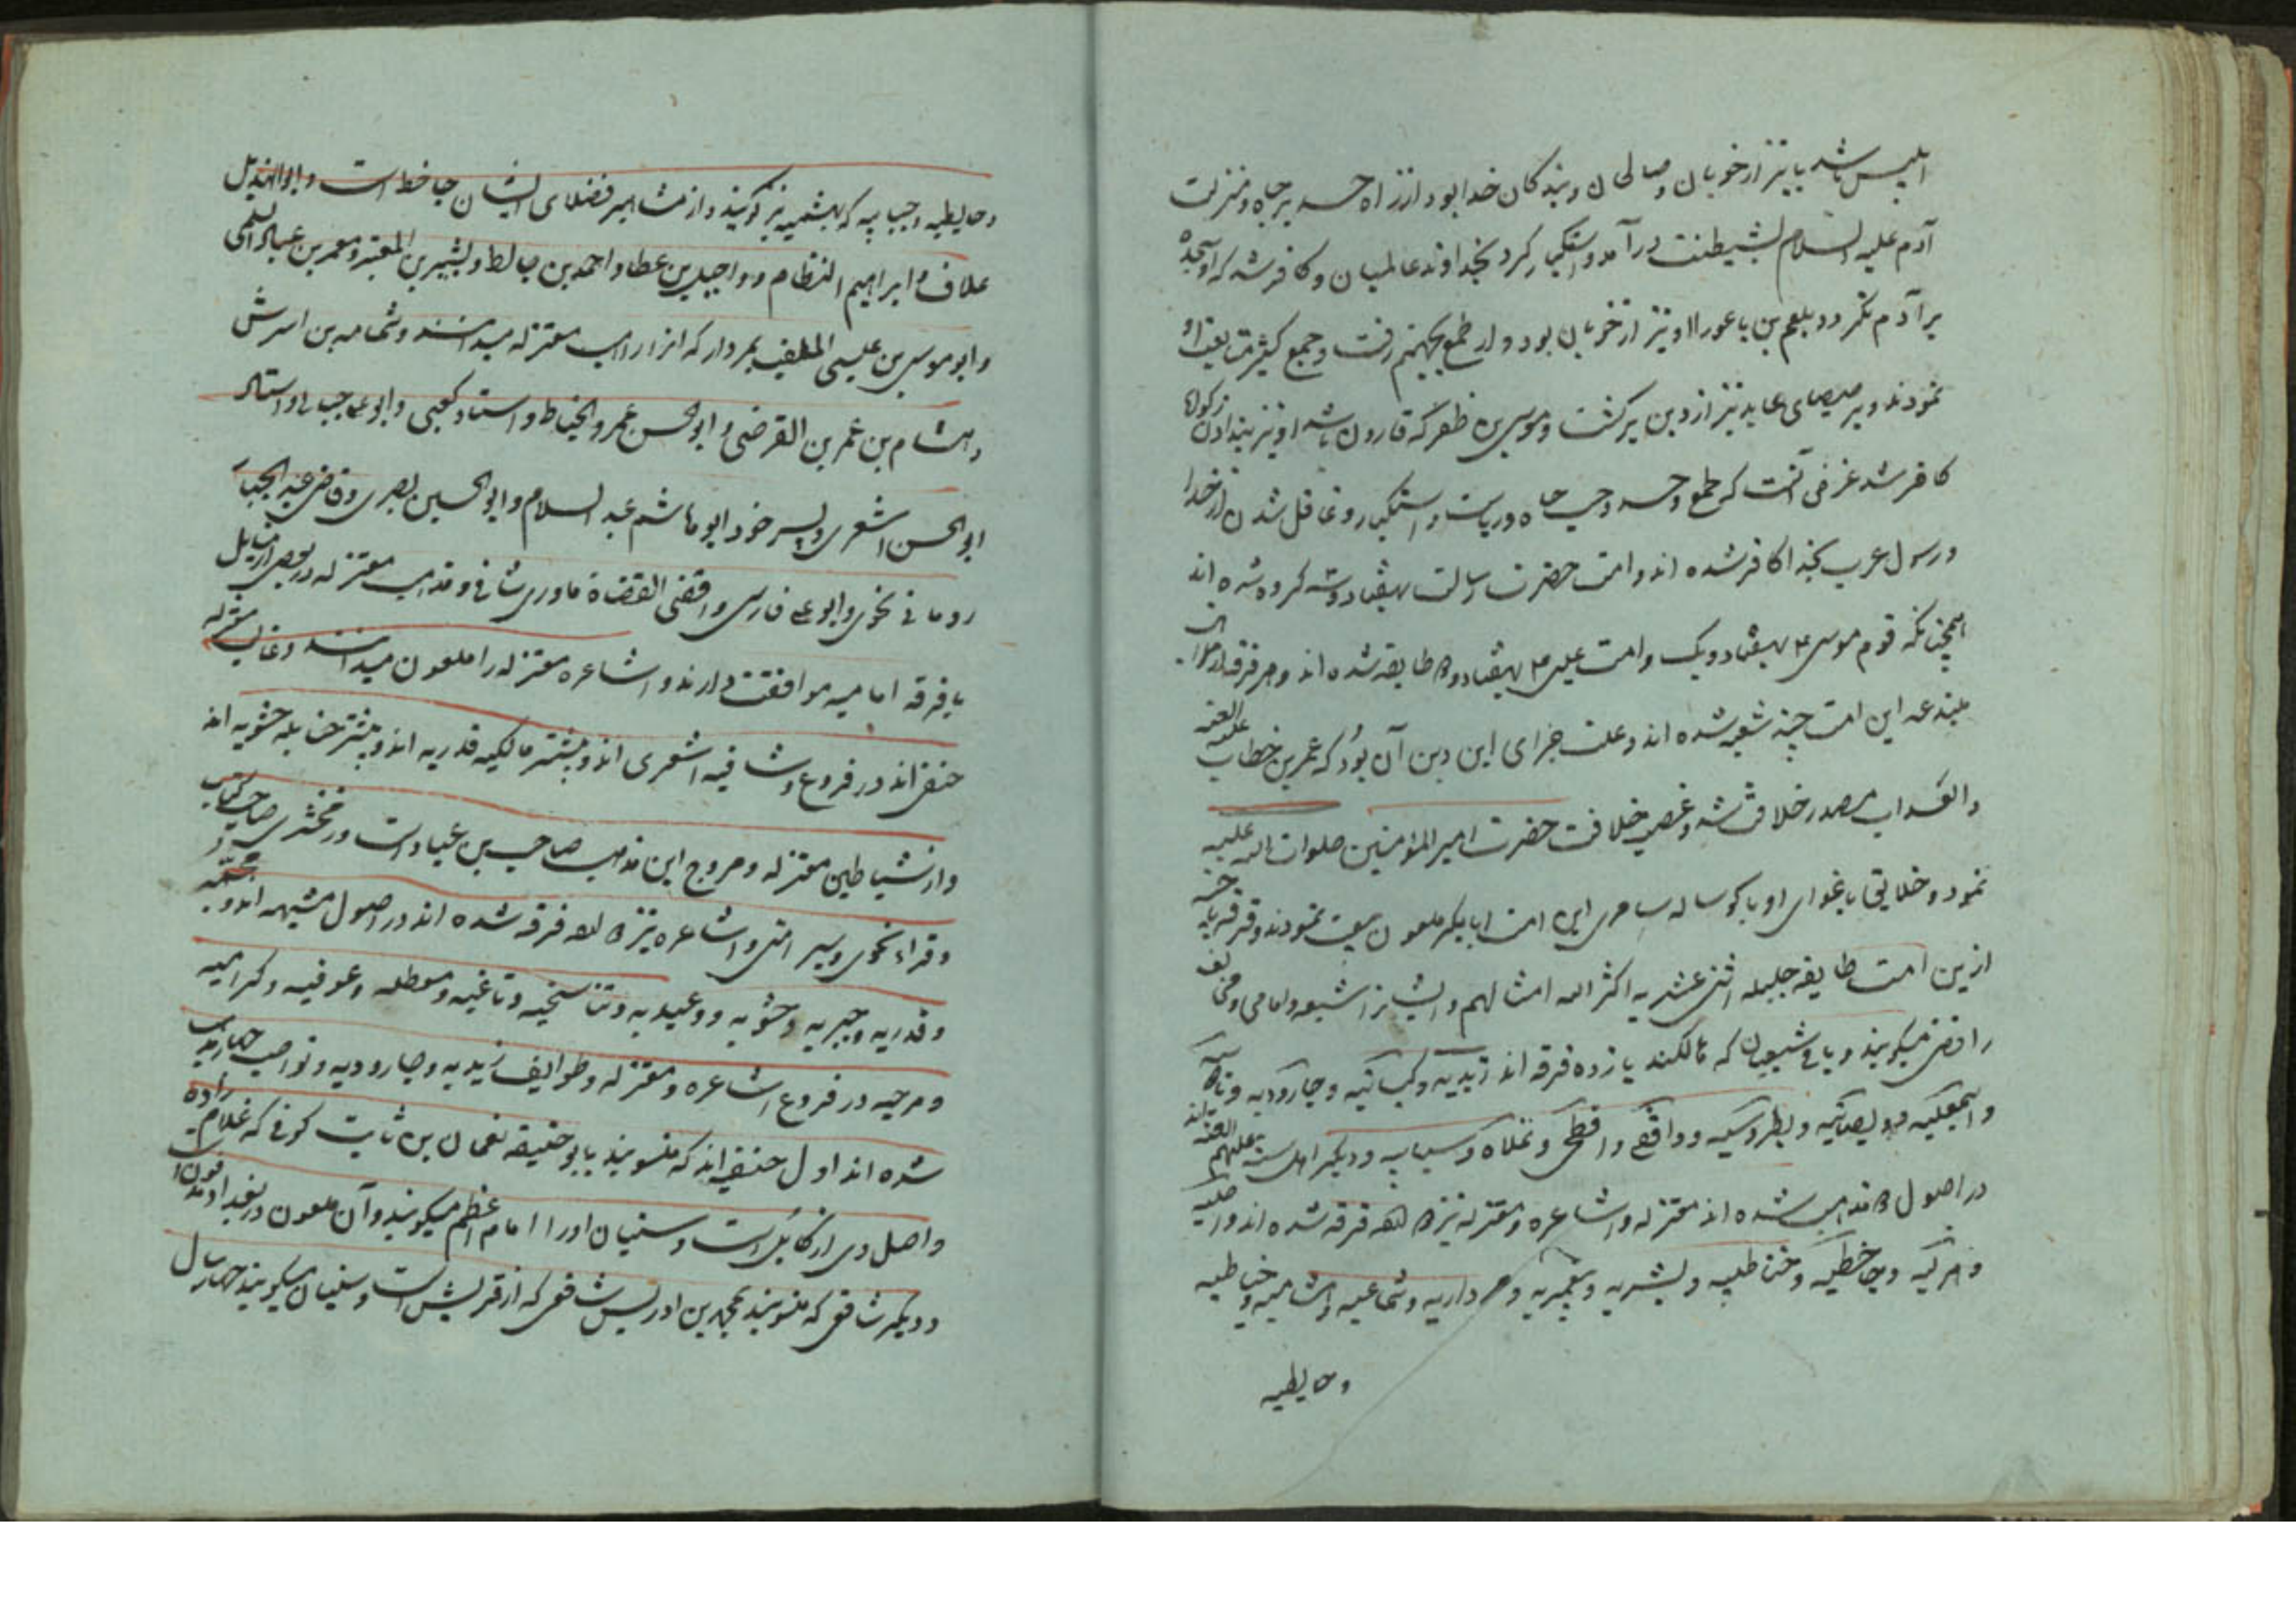 ابلیس باشد یا نیز از خوبان و صالحان و بندکان خدا بود از راه حسد بر جاه و منزلت
آدم علیه السلام بشیطنت درآمد و استکبار کرد بخداوند عالمیان و کافر شد که او سجده
بر آدم نکرد و بلعم بن باعورا او نیز از خوبان بود و از طمع بجهنم رفت و جمع کیثر متابعت او
نمودند و برصیصای عابد نیز از دین برکشت و موسی بن ظفر که قارون باشد او نیز بندادن زکوة
کافر شد غرض آنست که طمع و حسد و حب جاه و ریاست و استکبار و غافل شدن از خدا
و رسول عرب بخدا کافر شده اند و امت حضرت رسالت بهفتاد و سه کروه شده اند
همچنانکه قوم موسی ع بهفتاد و یک و امت عیسی ع بهفتاد و دو طایفه شده اند و هر فرقه از
مبتدعه این امت چند شعبه شده اند و علت جزای این دین آن بود که عمر بن خطاب علیه اللعنه
والعذاب مصدر خلاف شد و غصب خلافت حضرت امیر المؤمنین صلوات الله علیه
نمود و خلایق باغوای او با کوساله سامری این امت ابابکر ملعون بیعت نمودند و فرقه ناجیه
ازین امت طایفه جلیله اثنی عشریه اکثر الله امثالهم و ایشانرا شیعه و امامی و مخالف
رافضی میکویند و باقی شیعیان که هالکند یازده فرقه اند زیدیه و کیسانیه و جارودیه و
و اسمعیلیه و دیصانیه و بطروسیه و واقفی و افطحی و غلاة و سبابیه و دیکر اهل سنت علیهم اللعنه
در اصول دو مذهب شده اند معتزله و اشاعره و معتزله نیز فرقه شده اند واصلیه
و هزلیه و جاحظیه و خناطیه و بشریه و معمریه و مرداریه و ثمامیه و هشامیه و خیاطیه
و حایطیه
و حایطیه و جبابیه که بهشمیه نیز کویند و از مشاهیر فضلای ایشان جاحظ است و ابوالهذیل
علاف و ابراهیم النظام و واصل بن عطا و احمد بن حابط و بشیر بن المعتبر و معمر بن عباد السلمی
و ابو موسی بن عیسی الملقب بمردار که انرا راهب معتزله میدانند و ثمامه بن اسرش
و هشام بن عمر بن القرضی و ابوالحسن عمرو الخیاط و استاد کعبی و ابو علی جبائی و استاد
ابوالحسن اشعری و پسر خود ابوهاشم عبد السلام و ابوالحسین بصری و قاضی عبد الجبار
رومانی نحوی و ابو علی فارسی و اقضی القضاة ماوری شافی و مذهب معتزله در بعضی از مسایل
با فرقه امامیه موافقت دارند و اشاعره معتزله را ملعون میدانند و غالب معتزله
حنفی اند در فروع و شافعیه اشعری اند و بیشتر مالکیه قدریه اند و بیشتر حنابله حشویه اند
و از شیاطین معتزله و مروج این مذهب صاحب بن عباد است و زمخشری صاحب کشاف
و فراء نحوی و سیرافی و اشاعره نیز فرقه شده اند در اصول مشبهه اند و مجسمه
و قدریه و جبریه و حشویه و وعیدیه و تناسخیه و تاغیه و معطله و عوفیه و کرامیه
و مرجیه در فروع اشاعره و معتزله و طوایف زیدیه و جارودیه و نواصب چهار مذهب
شده اند اول حنفی اند که منسوبند بابو حنیفه نعمان بن ثابت کوفی که غلام زاده است
و اصل وی از کابل است و سنیان او را امام اعظم میکویند و آن ملعون در بغداد مدفون است
و دیکر شافعی که منسوبند بمحمد بن ادریس شافعی که از قریش است و سنیان میکویند چهار سال